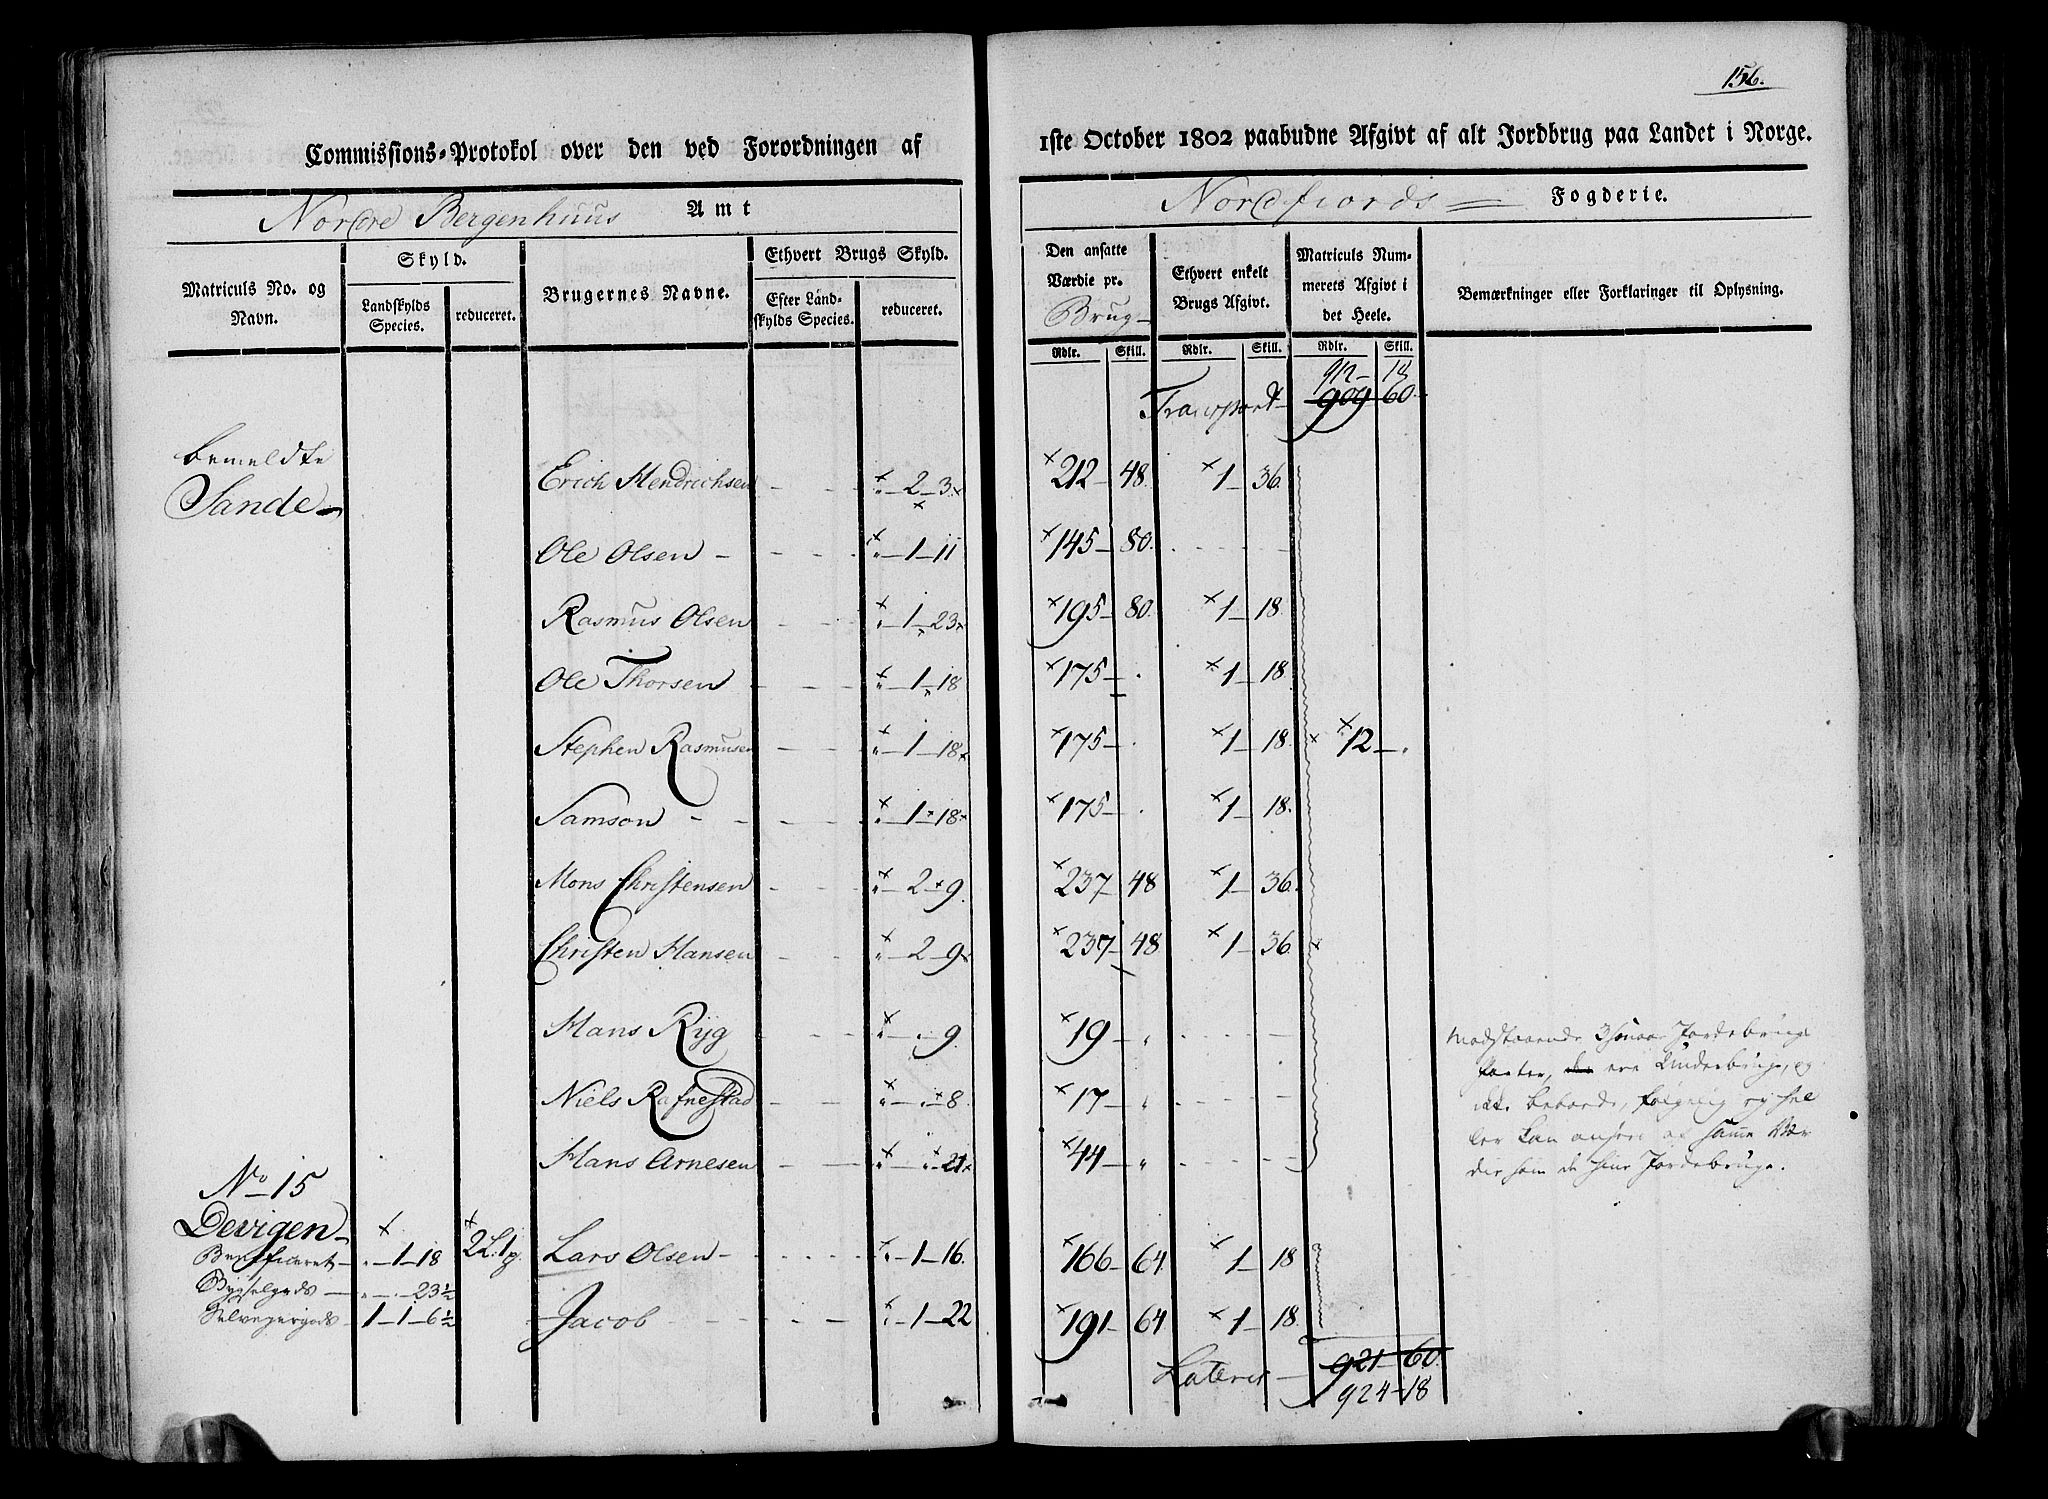 156.
Commissions-Protokol over den ved Forordningen af 1ste October 1802 paabudne Afgivt af alt Jordbrug paa Landet i Norge.
Nordre Bergenhuus Amt
Nordfiords Fogderie.
Matriculs No. og Navn.
Skyld.
Landskylds Species.
reduceret.
Brugernes Navne.
Ethvert Brugs Skyld.
Efter Landskylds Species.
reduceret.
Den ansatte Værdie pr. Brug
Ethvert enkelt Brugs Afgivt.
Matriculs Nummerets Afgivt i det Heele.
Bemærkninger eller Forklaringer til Oplysning.
Rdlr. Skill. Rdlr. Skill. Rdlr. Skill.
912 - 18
Transport - 909 60
bemeldte
Sande
Erich Hendrichsen " - 2 - 3 212 - 48. 1 - 36.
Ole Olsen - " - 1 - 11 145 - 80.
Rasmus Olsen " - 1 - 23 195 - 80. 1 - 18.
Ole Thorsen " - 1 - 18 175 - . 1 - 18.
Stephen Rasmusen " - 1 - 18 175 - . 1 - 18. 12 - .
Samson " - 1 - 18 175 - . 1 - 18.
Mons Christensen " - 2 - 9. 237 - 48 1 - 36.
Christen Hansen " - 2 - 9 237 - 48 1 - 36.
Hans Ryg " - . - 9. 19 - "
Niels Rafnestad " - . - 8. 17 - "
Hans Arnesen " - " - 21 44 - "
Modstaaende 3 smaae Jordebrugs
Parter, ere Underbruge, og
ikke beboede, følgelig ey hel
ler kan ansees af samme Vær
die som de siene Jordebruge.
No 15
Devigen
Beneficeret - " - 1 - 18 2 L. 1 p. Lars Olsen - " - 1 - 16. 166 - 64. 1 - 18
Bygselgods - " - . - 23½
Selveyergods - 1 - 1 - 6½ Jacob " - 1 - 22 191 - 64 1 - 18.
Lateris - 921 - 60.
924 - 18